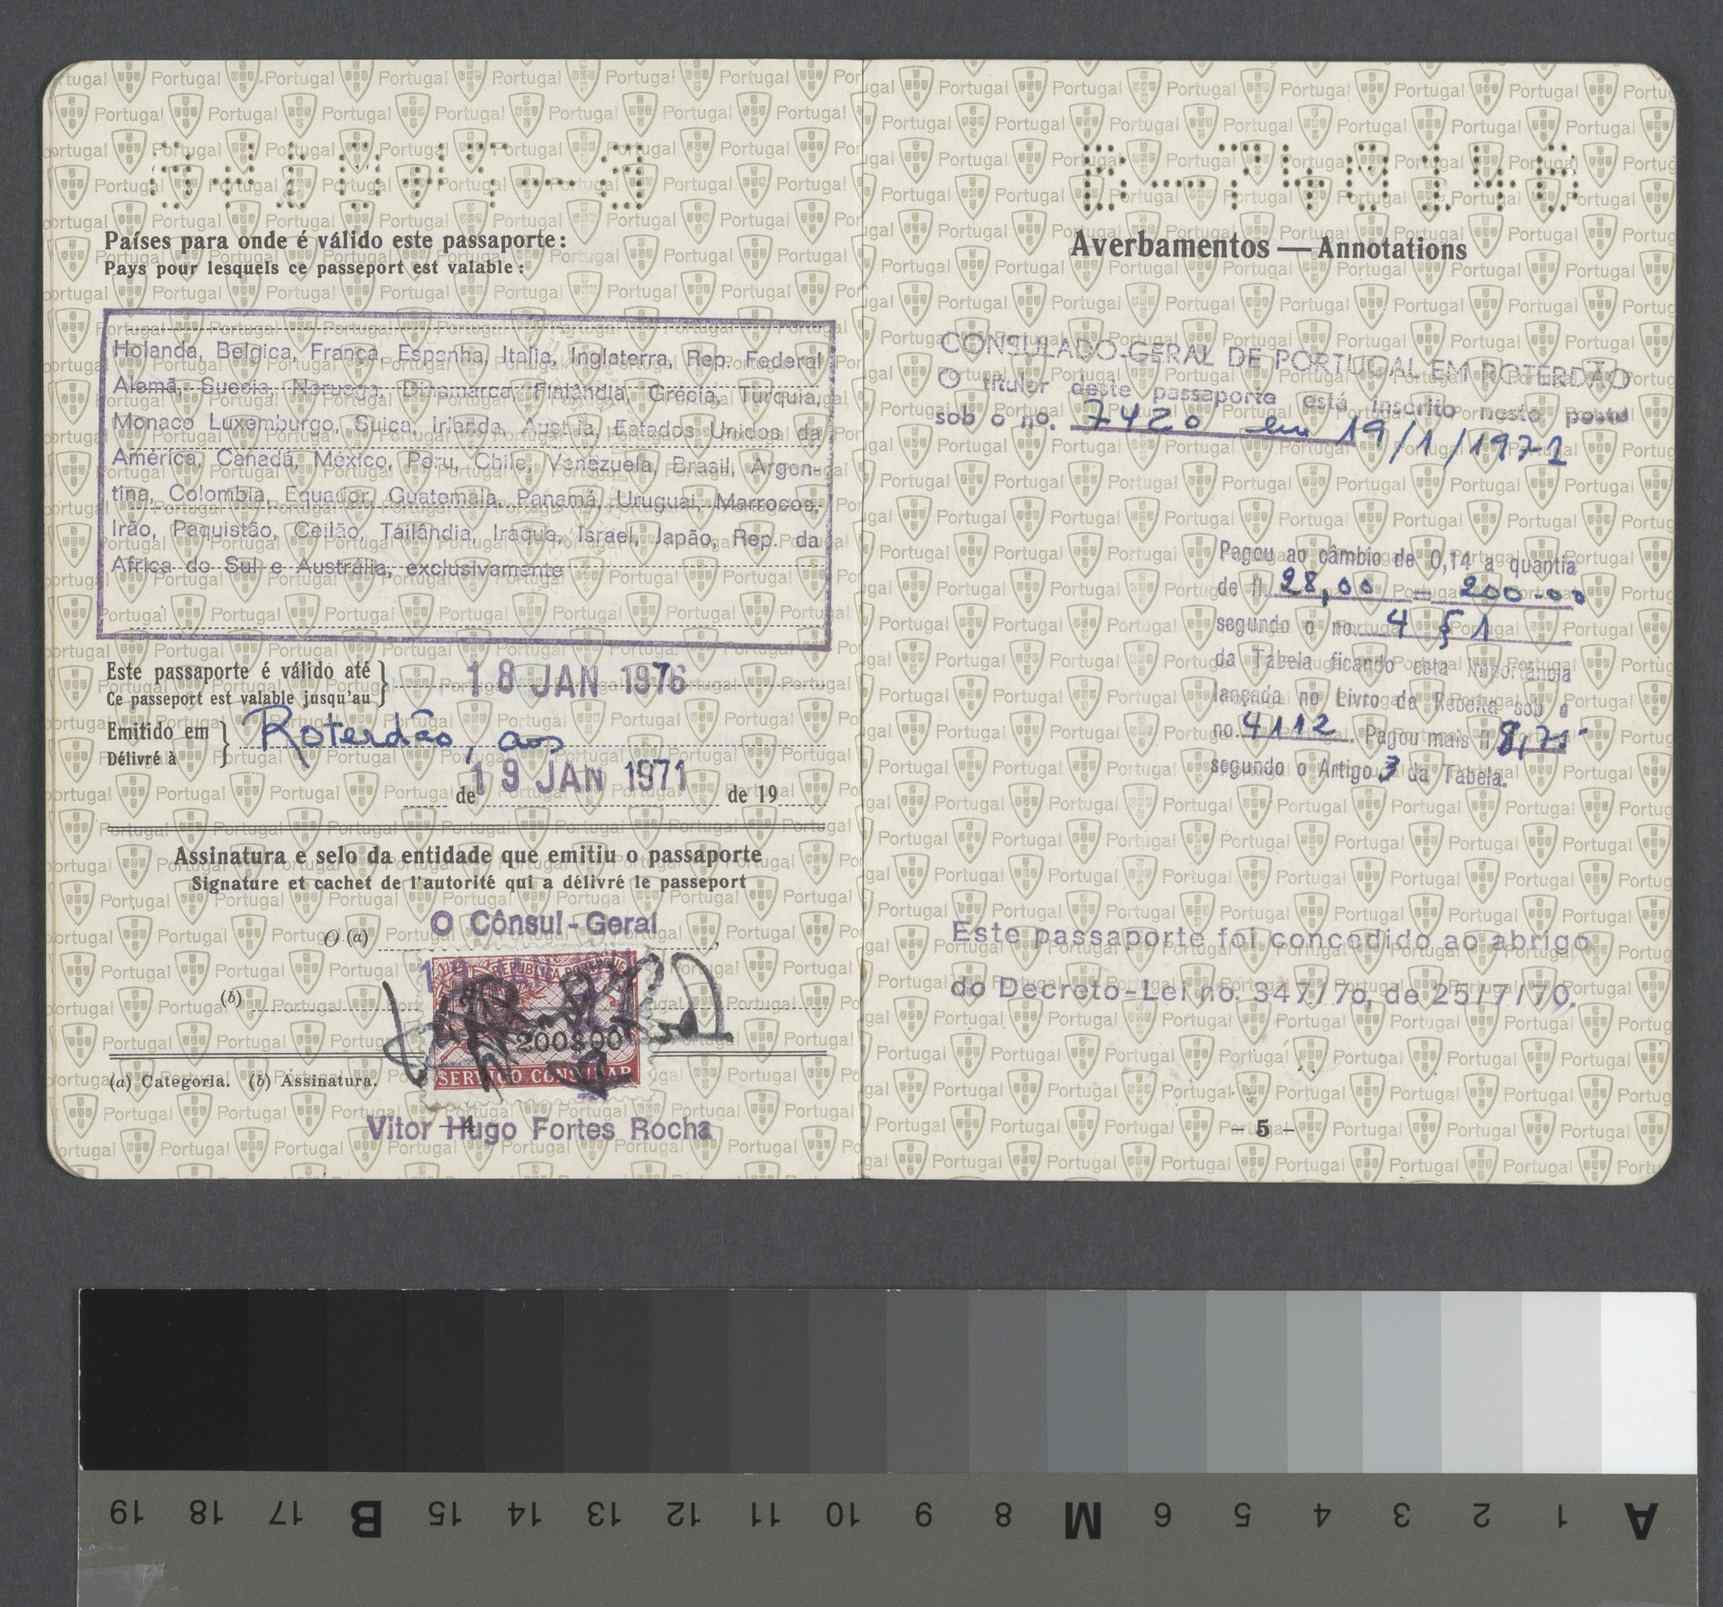 Países para onde é válido este passaporte:
Pays pour lesquels ce passeport est valable:
Holanda, Belgica, França, Espanha, Italia, Inglaterra, Rep. Federal
Alemã, Suecia, Noruega, Dinamarca, Finlândia, Grécia, Turquia,
Monaco Luxemburgo, Suica, Irlanda, Austria, Estados Unidos da
América, Canadá, México, Peru, Chile, Venezuela, Brasil, Argen-
tina, Colombia, Equador, Guatemala, Panamá, Uruguai, Marrocos,
Irão, Paquistão, Ceilão, Tailândia, Iraque, Israel, Japão, Rep. da
Africa do Sul e Austrália, exclusivamente
Este passaporte é válido até
Ce passeport est valable jusqu'au
18 JAN 1976
Emitido em
Délivré à
Roterdão, aos
de 19 JAN 1971 de 19
Assinatura e selo da entidade que emitiu o passaporte
Signature et cachet de l'autorité qui a délivré le passeport
O (a) O Cônsul-Geral
(b)
REPUBLICA PORTUGUESA
200$00
SERVIÇO CONSULAR
(a) Categoria. (b) Assinatura.
Vitor Hugo Fortes Rocha
4
Averbamentos — Annotations
CONSULADO-GERAL DE PORTUGAL EM ROTERDÃO
O titular deste passaporte está inscrito neste posto
sob o no. 7420 em 19/1/1971
Pagou ao câmbio de 0,14 a quantia
de fl 28,00 — 200.00
segundo o no. 4 § 1
da Tabela ficando esta importância
lançada no Livro da Receita sob o
no. 4112. Pagou mais fl
segundo o Artigo 3 da Tabela.
Este passaporte foi concedido ao abrigo
do Decreto-Lei no. 347/70, de 25/7/70.
- 5 -
19 18 17 B 15 14 13 12 11 10 9 8 M 6 5 4 3 2 1 A